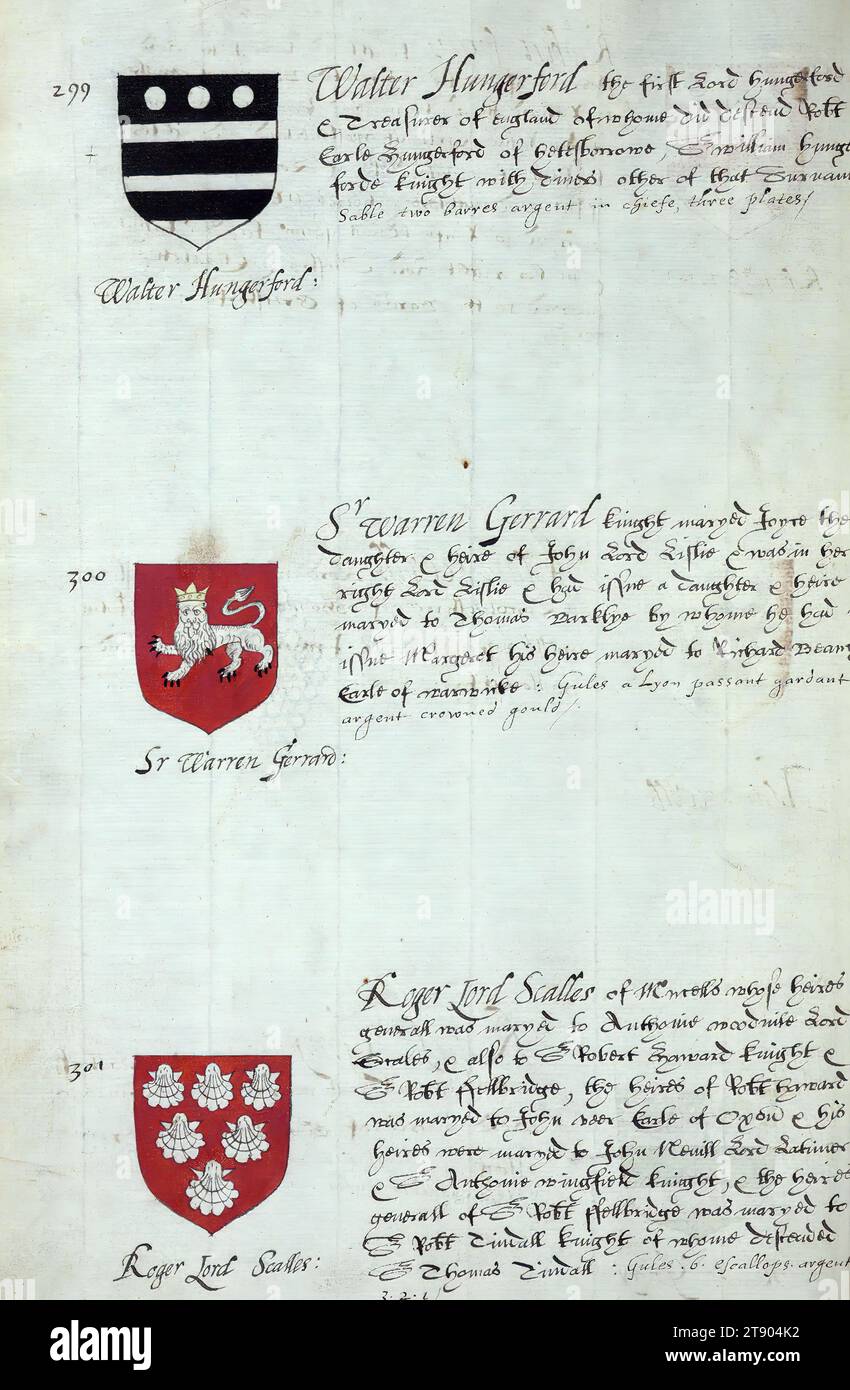 299
Walter Hungerford the first Lord Hungerford
& Treasurer of england of whome did descend Robt
Earle Hungerford of hetesborrowe, Sr william Hunge
forde knight with divers other of that Surnam
Sable two barres argent in chiefe, three plates/
Walter Hungerford:
300
Sr Warren Gerrard knight maryed Joyce the
daughter & heire of John Lord Lislie & was in her
right Lord Lislie & had issue a daughter & heire
maryed to Thomas Barklye by whome he had
issue Margeret his heire maryed to Richard Beam
Earle of warwicke: Gules a Lyon passant gardant
argent crowned gould/.
Sr Warren Gerrard:
301
Roger Lord Scalles of whose heires
generall was maryed to Anthonie woodvile Lord
Scales, & also to Sr Robert Hyward knight &
Sr Robt ffelbridge, the heires of Robt Haward
was maryed to John veer Earle of Oxon & his
heires were maryed to John Nevill Lord Latimer
& Sr Anthonie wingfield knight, & the heires
generall of Sr Robt ffelbridge was maryed to
Sr Robt Tindall knight of whome descended
Sr Thomas Tindall: Gules .6. escallops. argent
3. 2. 1/
Roger Lord Scalles:
alamy
Image ID: 2T904K2
www.alamy.com